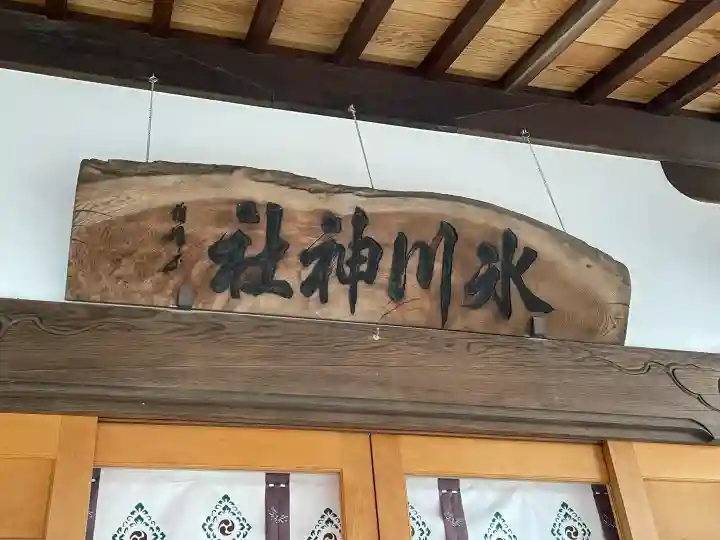 氷川神社